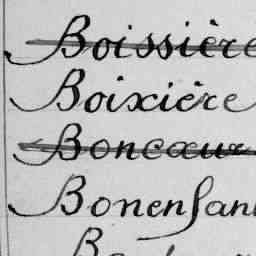 Boissière
Boixière
Boncœur
Bonenfant